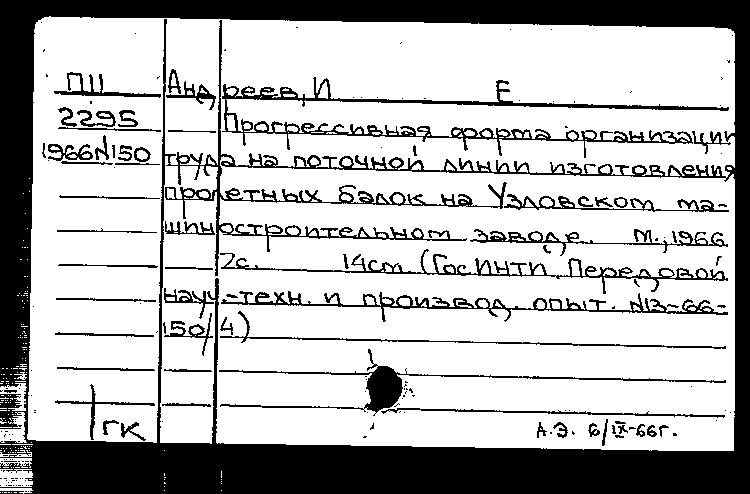 П11 Андреев, И Е
2295 Прогрессивная форма организации
1966N150 труда на поточной линии изготовления
пролетных балок на Узловском ма-
шиностроительном заводе. М., 1966.
7с. 14см (ГосИНТИ. Передовой
науч.-техн. и производ. опыт. N13-66-
150/4)
ГК А.Э. 6/IX-66г.